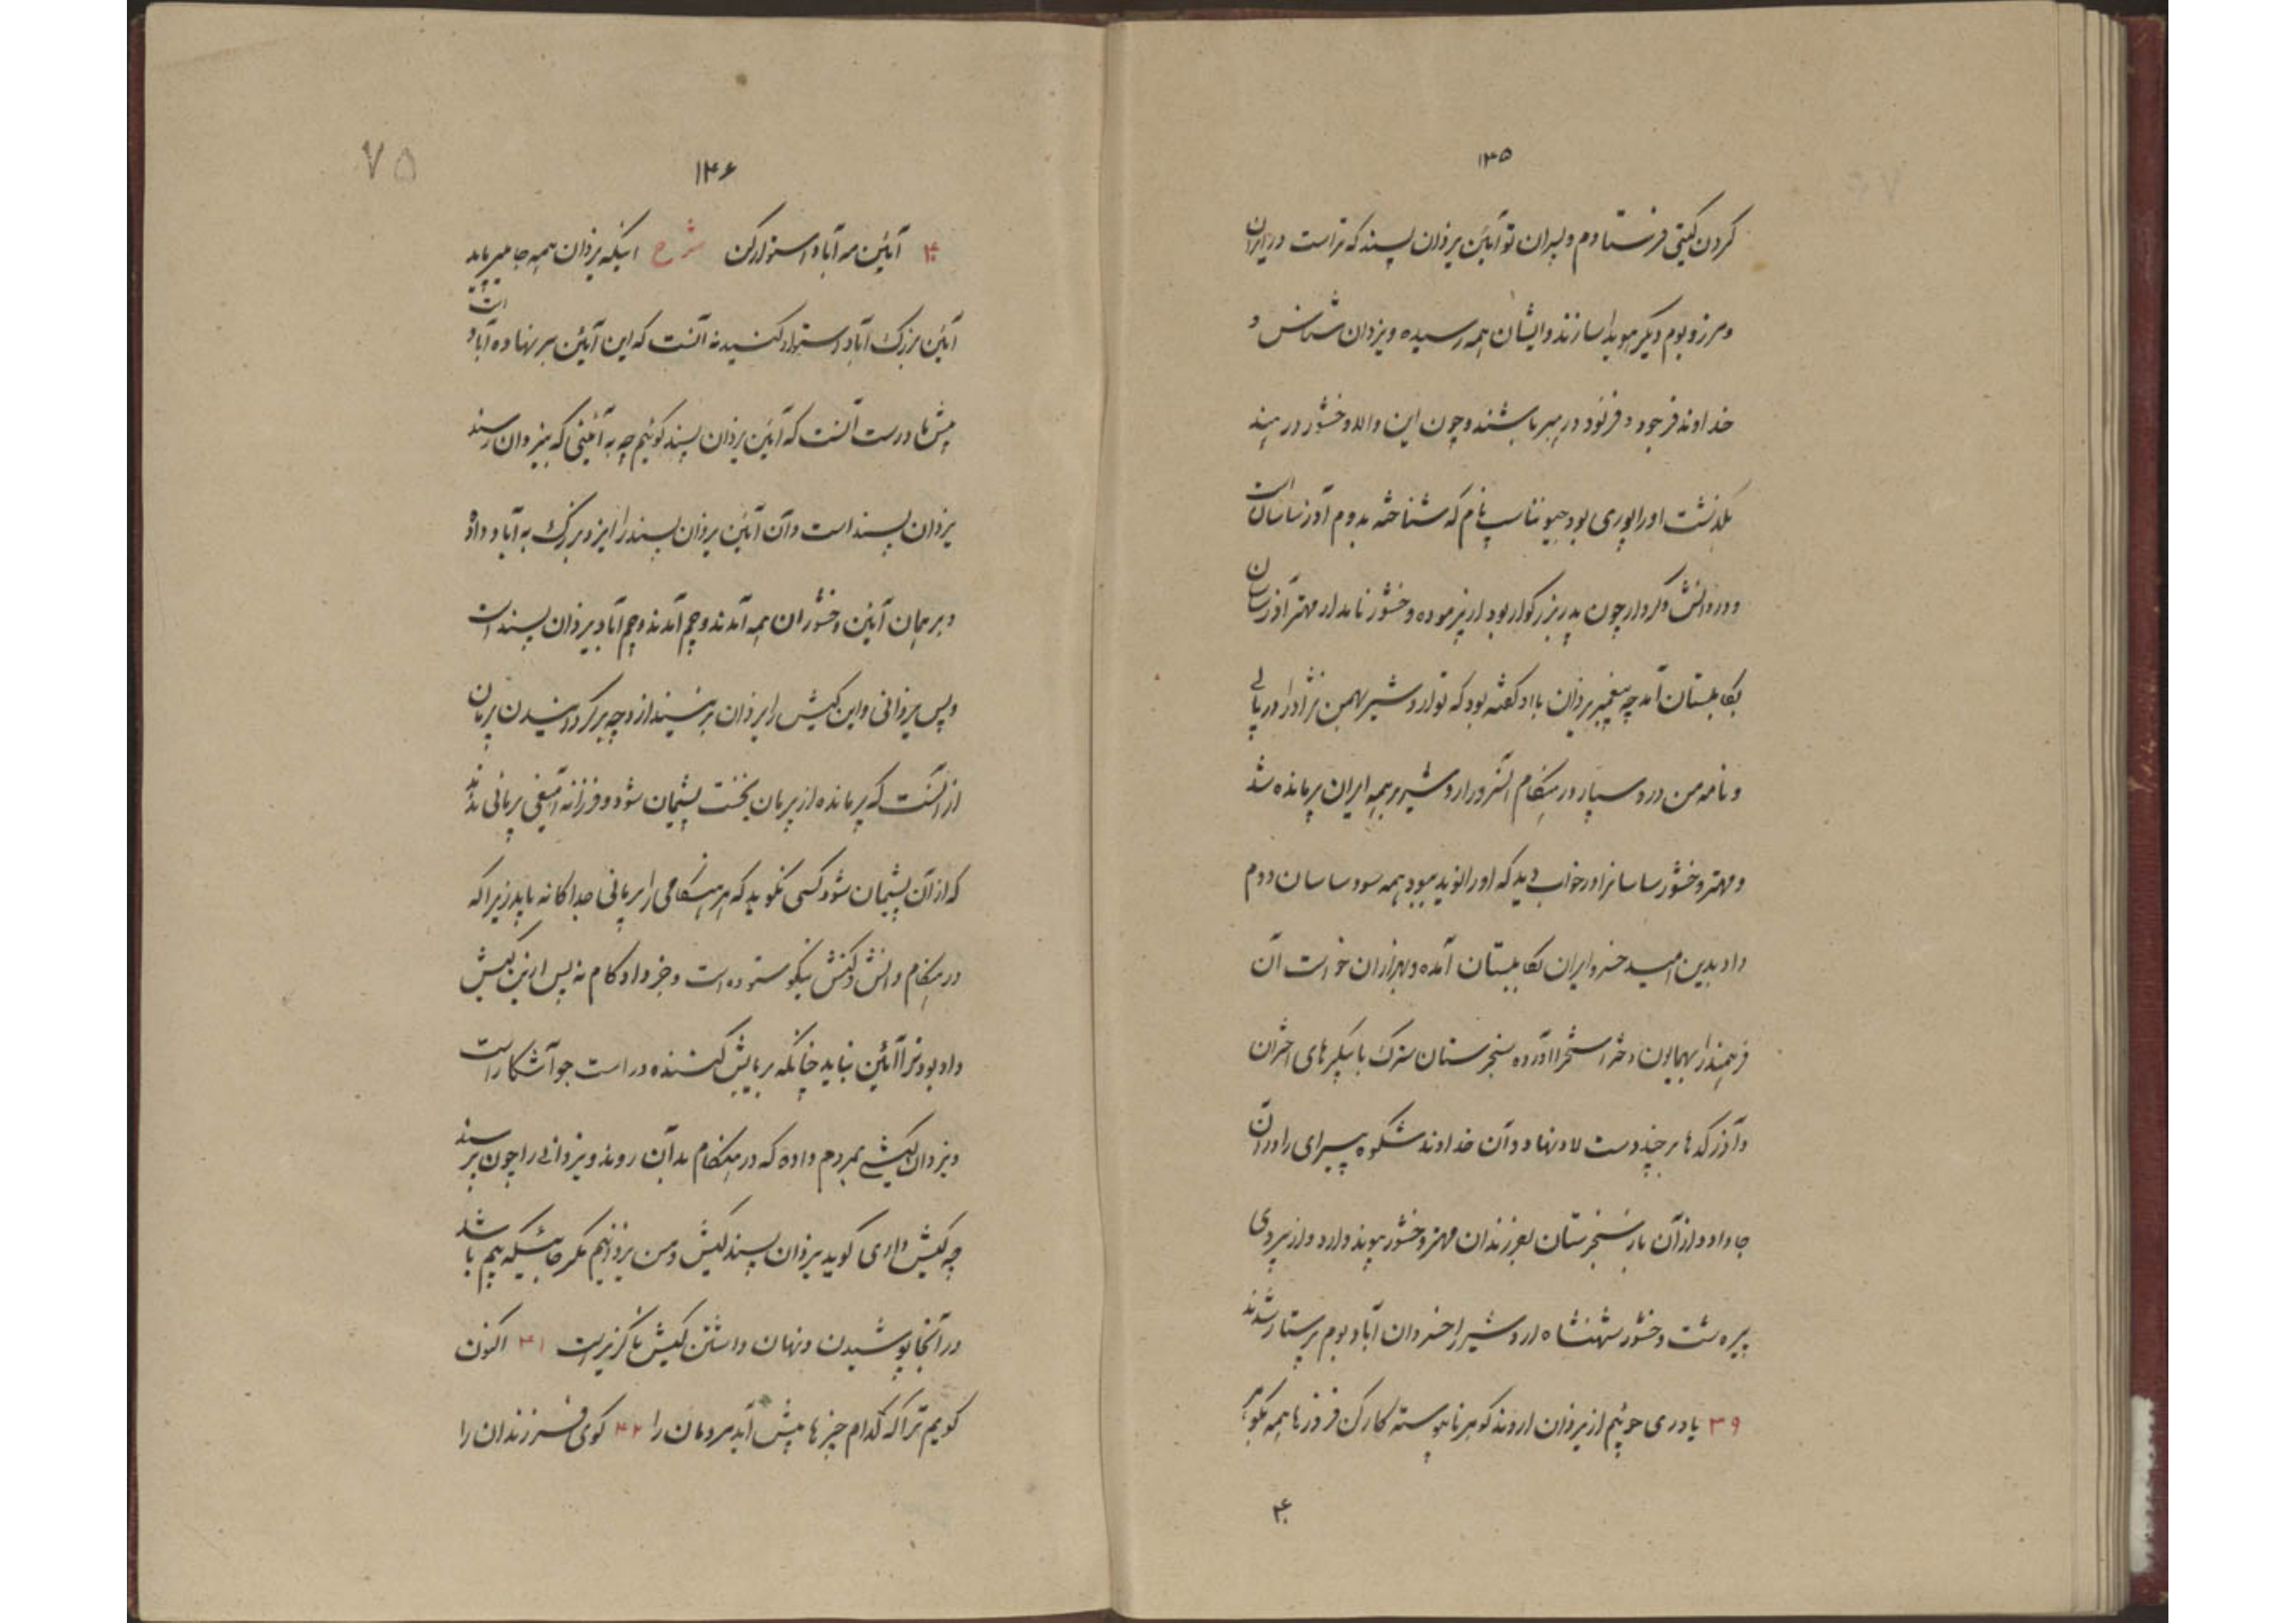 ۱۳۵
کردن گیتی فرستادم و پسران تو آیین یزدان پسند که تراست در ایران
و مرز و بوم دیگر هویدا سازند و ایشان همه رسیده و یزدان شناس و
خداوند فرجود و فرنود در مهر باشند و چون این والا وخشور در هند
بگذشت او را پوری بود جیوناسپ نام که شناخته بدوم آذر ساسان است
و در دانش و کردار چون پدر بزرگوار بود از فرموده وخشور نامدار مهتر آذر ساسان
بکابلستان آمد چه پیغمبر یزدان با او گفته بود که تو اردشیر بهمن نژاد را دریابی
و نامه من درو سپار در هنگام انروز اردشیر بر همه ایران پرمانده شد
و مهتر وخشور ساسانرا در خواب دید که او را نوید بهبود همه سود ساسان دوم
داد بدین امید خسرو ایران بکابلستان آمده و بهزاران خواست آن
فرهمند را بهمایون دخت استخر آورده سنجرستان سترک با پیکرهای اختران
و آذرکدها بر چند دست لاد نهاد و آن خداوند شکوه پیرای را در آن
جا داد و از آن باز سنجرستان بفرزندان مهتر وخشور پیوند دارد و از پیروی
پیره شت وخشور شهنشاه اردشیر را خسروان آباد بوم پرستار شدند
۳۹ یاوری جوئیم از یزدان اروند گوهر ناپیوسته کارکن فروزها همه نکوئی
۴۰
۷۵
۱۳۶
۴۰ آئین مه آباد استوار کن شرح اینکه یزدان همه جا میفرماید
آئین بزرگ آباد استوار کنید نه آنست که این آئین بر نهاده آباد است
پیش ما درست آنست که آئین یزدان پسند گوئیم چه به آئینی که بیزدان رسند
یزدان پسند است و آن آئین یزدان پسند را ایزد بزرگ به آباد داده
و بر همان آئین وخشوران همه آمدند و جم آمدند و جم آباد یزدان پسند است
و پس یزدانی و این کیش را یزدان بر نیندازد چه برگردانیدن پرمان
از آنست که پرمانده از پرمان نخست پشیمان شود و فرزانه آمیغی پرمانی ندهد
که از آن پشیمان شود کسی نگوید که هر هنگامی را پرمانی جداگانه باید زیرا که
در هنگام دانش و کنش نیکو ستوده است و جز داد کام نه پس از این کیش
داد بود ترا آئین نباید چنانکه بر یابش کننده در است جو آشکار است
و یزدان کیشی بمردم داده که در هنگام بدان روند و یزدانی را چون پرسند
چه کیش داری گوید یزدان پسند کیش و من یزدانیم مگر جائیکه بیم باشد
در آنجا پوشیدن و نهان داشتن کیش ناگزیر است ۴۱ اکنون
گویم ترا که کدام چیزها پیش آید مردمان را ۴۲ گوی فرزندان را